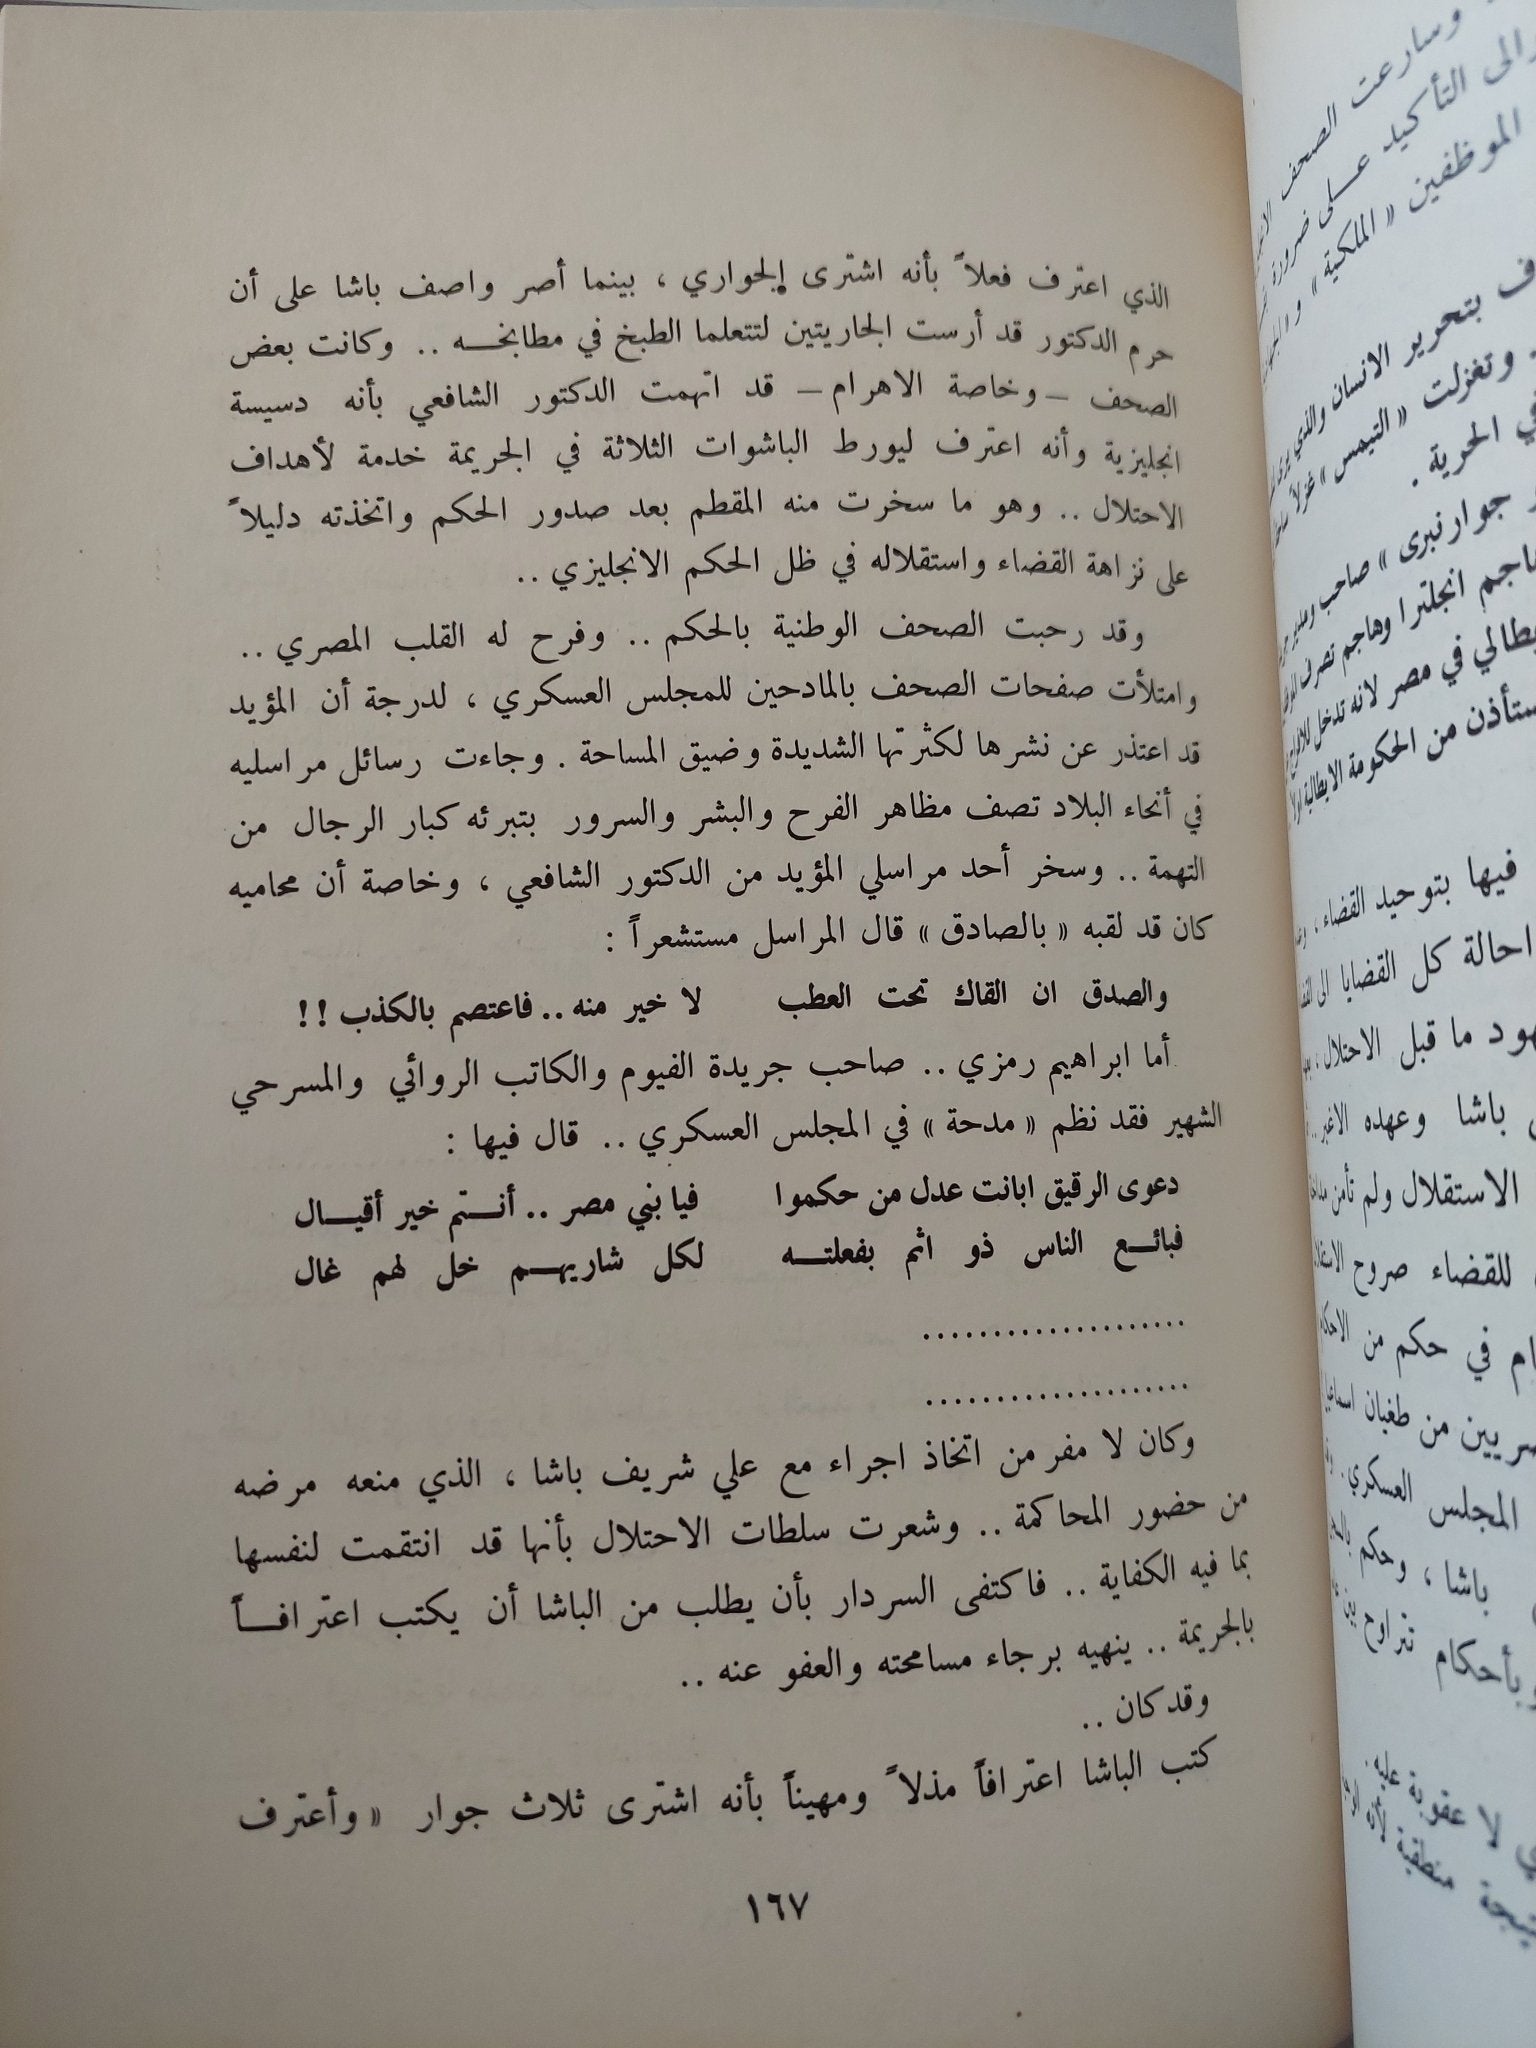 الذي اعترف فعلاً بأنه اشترى الجواري ، بينما أصر واصف باشا على أن
حرم الدكتور قد أرست الجاريتين لتتعلما الطبخ في مطابخـــه .. وكانت بعض
الصحف – وخاصة الاهرام – قد اتهمت الدكتور الشافعي بأنه دسيسة
انجليزية وأنه اعترف ليورط الباشوات الثلاثة في الجريمة خدمة لأهداف
الاحتلال .. وهو ما سخرت منه المقطم بعد صدور الحكم واتخذته دليلاً
على نزاهة القضاء واستقلاله في ظل الحكم الانجليزي ..
وقد رحبت الصحف الوطنية بالحكم .. وفرح له القلب المصري ..
وامتلأت صفحات الصحف بالمادحين للمجلس العسكري ، لدرجة أن المؤيد
قد اعتذر عن نشرها لكثرتها الشديدة وضيق المساحة . وجاءت رسائل مراسليه
في أنحاء البلاد تصف مظاهر الفرح والبشر والسرور بتبرئه كبار الرجال من
التهمة .. وسخر أحد مراسلي المؤيد من الدكتور الشافعي ، وخاصة أن محاميه
كان قد لقبه « بالصادق » قال المراسل مستشعراً :
والصدق ان القاك تحت العطب لا خير منه .. فاعتصم بالكذب !!
أما ابراهيم رمزي .. صاحب جريدة الفيوم والكاتب الروائي والمسرحي
الشهير فقد نظم « مدحة » في المجلس العسكري .. قال فيها :
دعوى الرقيق ابانت عدل من حكموا فيا بني مصر .. أنـــتم خير أقيـــال
فبائـــع الناس ذو اثم بفعلتـــه لكل شاريهـــم خل لهم غال
.....................
.....................
وكان لا مفر من اتخاذ اجراء مع علي شريف باشا ، الذي منعه مرضه
من حضور المحاكمة .. وشعرت سلطات الاحتلال بأنها قد انتقمت لنفسها
بما فيه الكفاية .. فاكتفى السردار بأن يطلب من الباشا أن يكتب اعترافـــاً
بالجريمة .. ينهيه برجاء مسامحته والعفو عنه ..
وقد كان ..
كتب الباشا اعترافاً مذلاً ومهيناً بأنه اشترى ثلاث جوار « وأعترف
١٦٧
وسارعت الصحف
والى التأكيد عـــلى ضرورة
الموظفين « الملكية »
بتحرير الانسان والذي
وتغزلت « التيمس » غزلاً
الحرية .
جوارنبرى » صاحب ومدير
انجلترا وهاجم تصرف
في مصر لانه تدخل
من الحكومة الايطالية اولاً
فيها بتوحيد القضاء ،
احالة كل القضايا الى
ما قبل الاحتلال ،
باشا وعهده
الاستقلال ولم تأمن
للقضاء صروح
في حكم من
من طغيان
المجلس العسكري .
باشا ، وحكم
وبأحكام تتراوح بين
لا عقوبة عليه .
منطقية لأن